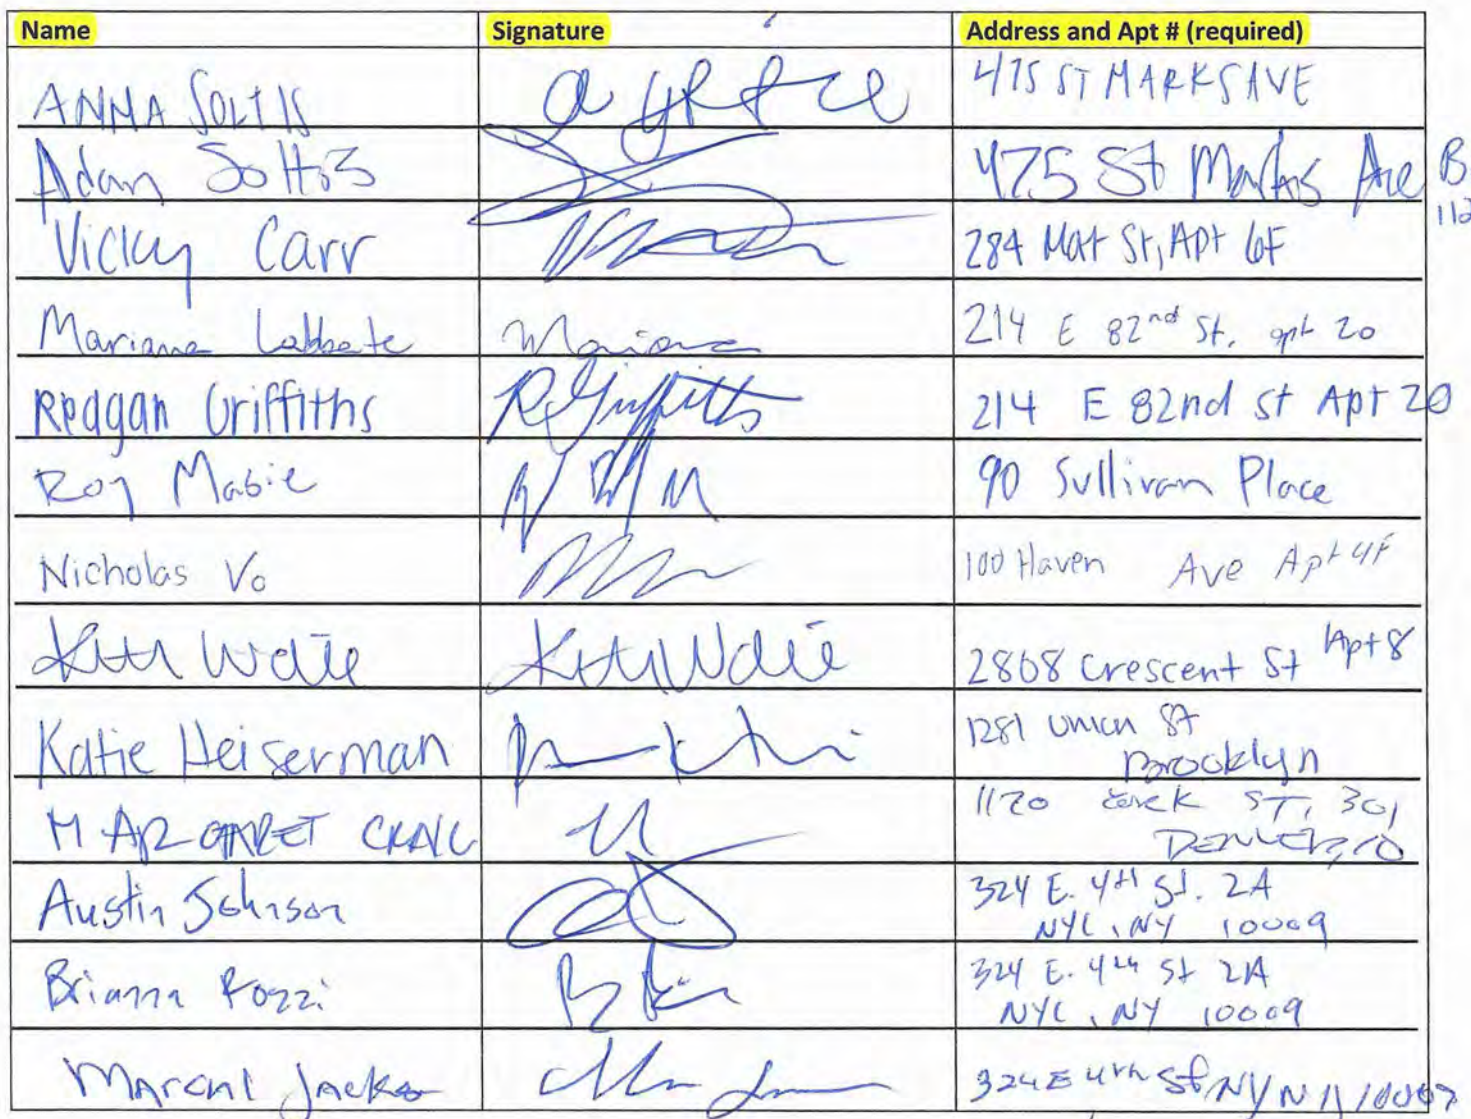 Name Signature Address and Apt # (required)
ANNA SOLTIS 475 ST MARKS AVE
Adam Soltis 475 St Marks Ave B
112
Vicky Carr 284 Mott St, Apt 6F
Mariana Labbate Mariana 214 E 82nd St. apt 20
Reagan Griffiths RGriffiths 214 E 82nd St Apt 20
Roy Mabie 90 Sullivan Place
Nicholas Vo 100 Haven Ave Apt 4F
2808 Crescent St Apt 8
Katie Heiserman 1281 Union St
Brooklyn
MARGARET CRAIG 1120 ST, 301
DENVER, CO
Austin Johnson 324 E. 4th St. 2A
NYC, NY 10009
Brianna Pozzi 324 E. 4th St 2A
NYC, NY 10009
324 E 4th St NY NY